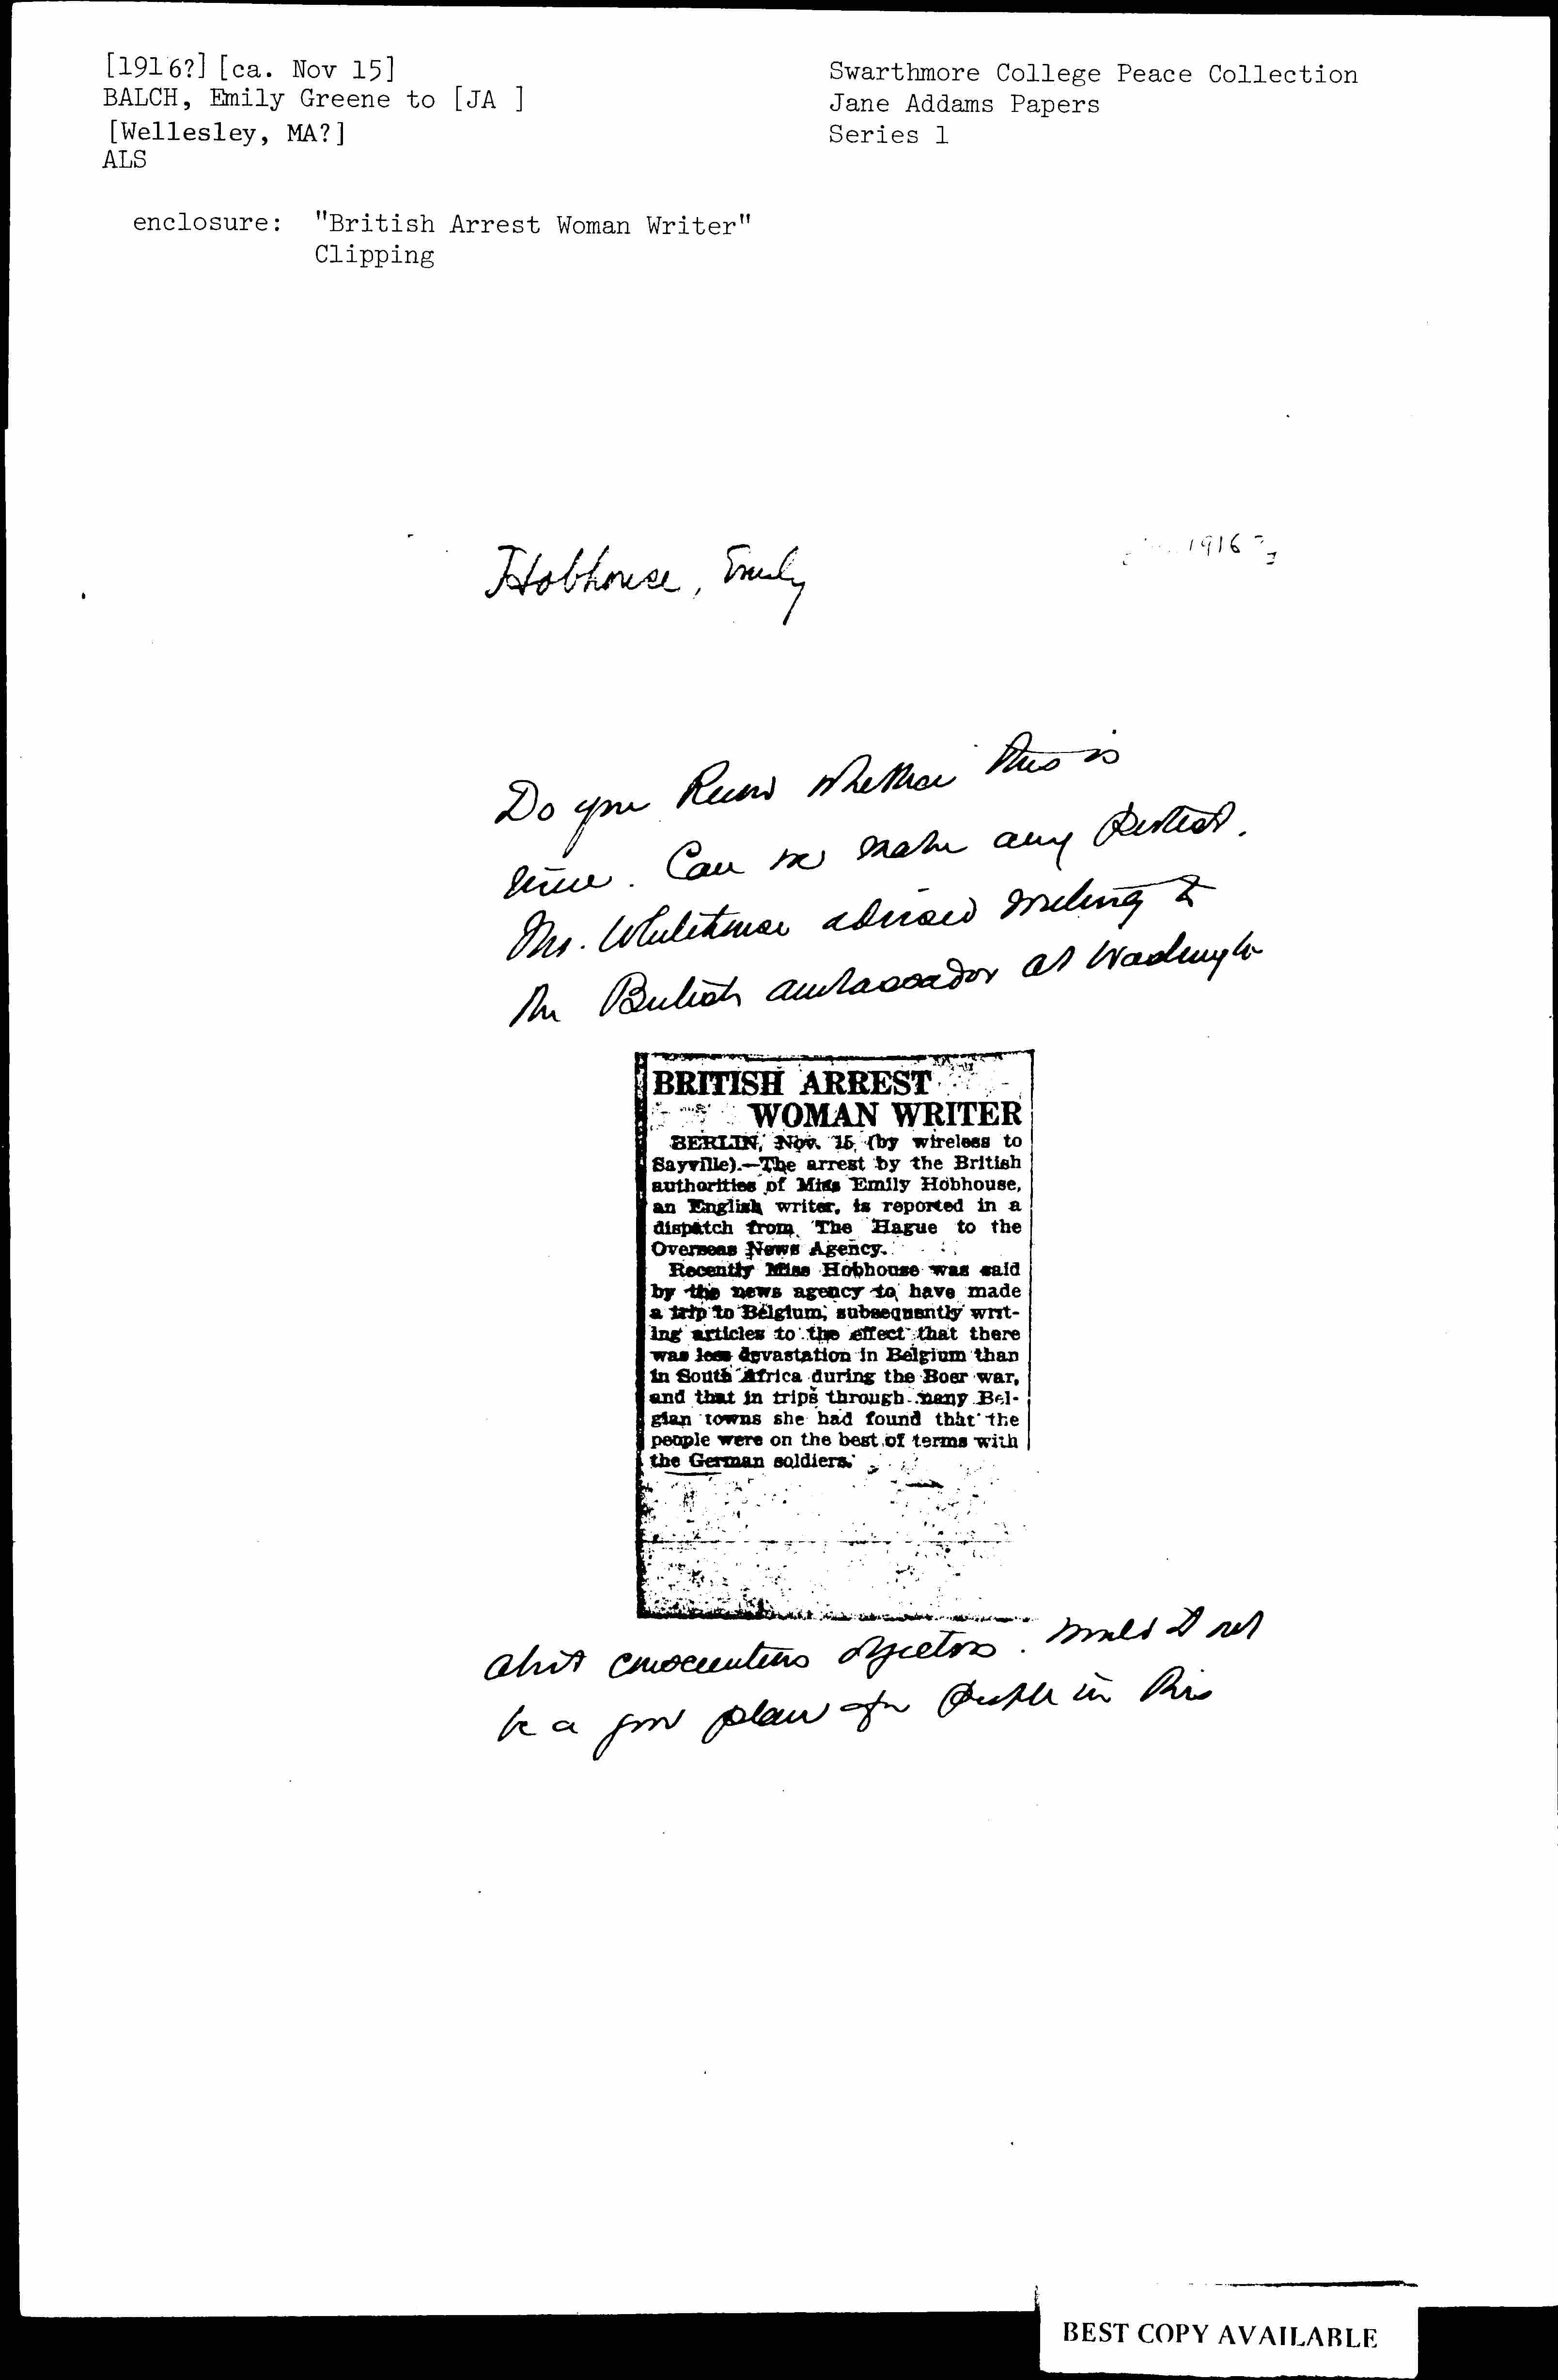 [1916?] [ca. Nov 15]
BALCH, Emily Greene to [JA ]
[Wellesley, MA?]
ALS
enclosure: "British Arrest Woman Writer"
Clipping
Swarthmore College Peace Collection
Jane Addams Papers
Series 1
1916?]
Hobhouse, Emily
Do you know whether this is
true. Can we make any protest.
Mrs. advised writing to
the British ambassador at Washington
BRITISH ARREST
WOMAN WRITER
BERLIN, Nov. 15 (by wireless to
Sayville).—The arrest by the British
authorities of Miss Emily Hobhouse,
an English writer, is reported in a
dispatch from The Hague to the
Overseas News Agency.
Recently Miss Hobhouse was said
by the news agency to have made
a trip to Belgium, subsequently writ-
ing articles to the effect that there
was less devastation in Belgium than
in South Africa during the Boer war,
and that in trips through many Bel-
gian towns she had found that the
people were on the best of terms with
the German soldiers.
about conscientious objectors. Would it not
be a good plan for people in this
BEST COPY AVAILABLE